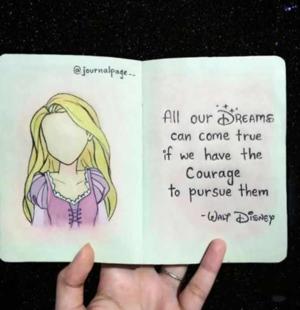 @journalpage__
All our DREAMS
can come true
if we have the
Courage
to pursue them
-WALT DISNEY